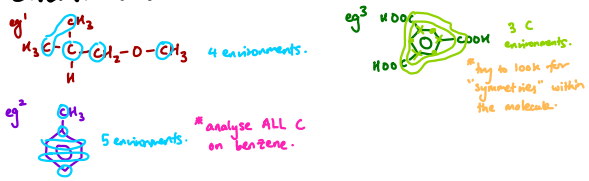 eg1
CH3
H3C-C-CH2-O-CH3
H
4 environments.
eg2
CH3
5 environments.
* analyse ALL C
on benzene.
eg3
HOOC
COOH
HOOC
3 C
environments.
* try to look for
"symmetries" within
the molecule.